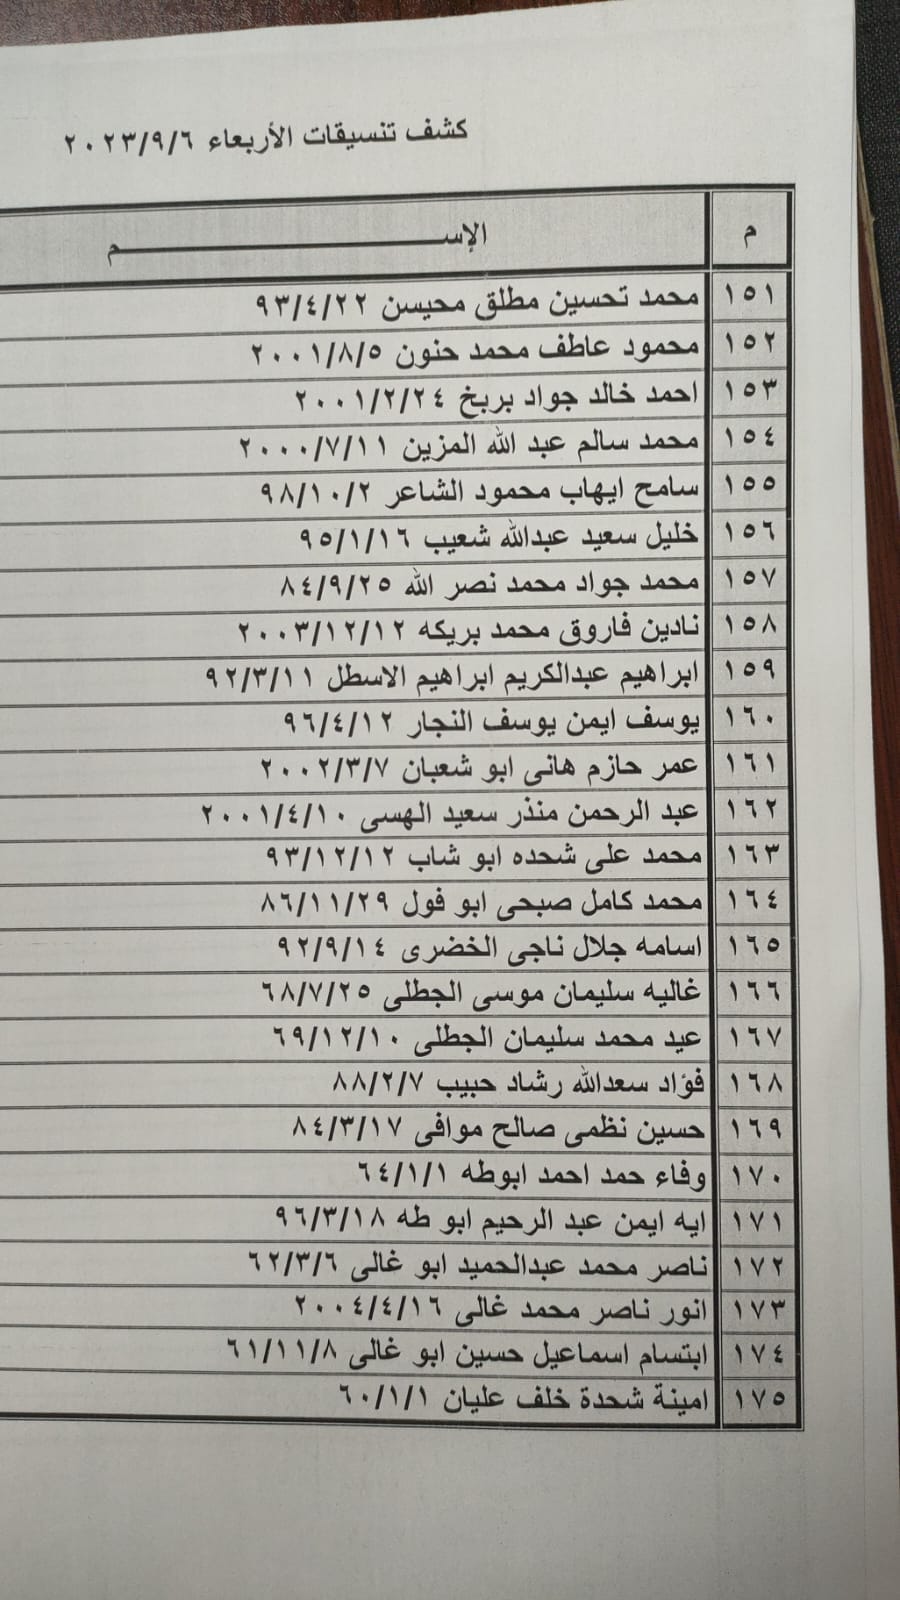 كشف تنسيقات الأربعاء ٢٠٢٣/٩/٦
م الإســـــــــــــــــــــم
١٥١ محمد تحسين مطلق محيسن ٩٣/٤/٢٢
١٥٢ محمود عاطف محمد حنون ٢٠٠١/٨/٥
١٥٣ احمد خالد جواد بربخ ٢٠٠١/٢/٢٤
١٥٤ محمد سالم عبد الله المزين ٢٠٠٠/٧/١١
١٥٥ سامح ايهاب محمود الشاعر ٩٨/١٠/٢
١٥٦ خليل سعيد عبدالله شعيب ٩٥/١/١٦
١٥٧ محمد جواد محمد نصر الله ٨٤/٩/٢٥
١٥٨ نادين فاروق محمد بريكه ٢٠٠٣/١٢/١٢
١٥٩ ابراهيم عبدالكريم ابراهيم الاسطل ٩٢/٣/١١
١٦٠ يوسف ايمن يوسف النجار ٩٦/٤/١٢
١٦١ عمر حازم هانى ابو شعبان ٢٠٠٢/٣/٧
١٦٢ عبد الرحمن منذر سعيد الهسى ٢٠٠١/٤/١٠
١٦٣ محمد على شحده ابو شاب ٩٣/١٢/١٢
١٦٤ محمد كامل صبحى ابو فول ٨٦/١١/٢٩
١٦٥ اسامه جلال ناجى الخضرى ٩٢/٩/١٤
١٦٦ غاليه سليمان موسى الجطلى ٦٨/٧/٢٥
١٦٧ عيد محمد سليمان الجطلى ٦٩/١٢/١٠
١٦٨ فؤاد سعدالله رشاد حبيب ٨٨/٢/٧
١٦٩ حسين نظمى صالح موافى ٨٤/٣/١٧
١٧٠ وفاء حمد احمد ابوطه ٦٤/١/١
١٧١ ايه ايمن عبد الرحيم ابو طه ٩٦/٣/١٨
١٧٢ ناصر محمد عبدالحميد ابو غالى ٦٢/٣/٦
١٧٣ انور ناصر محمد غالى ٢٠٠٤/٤/١٦
١٧٤ ابتسام اسماعيل حسين ابو غالى ٦١/١١/٨
١٧٥ امينة شحدة خلف عليان ٦٠/١/١